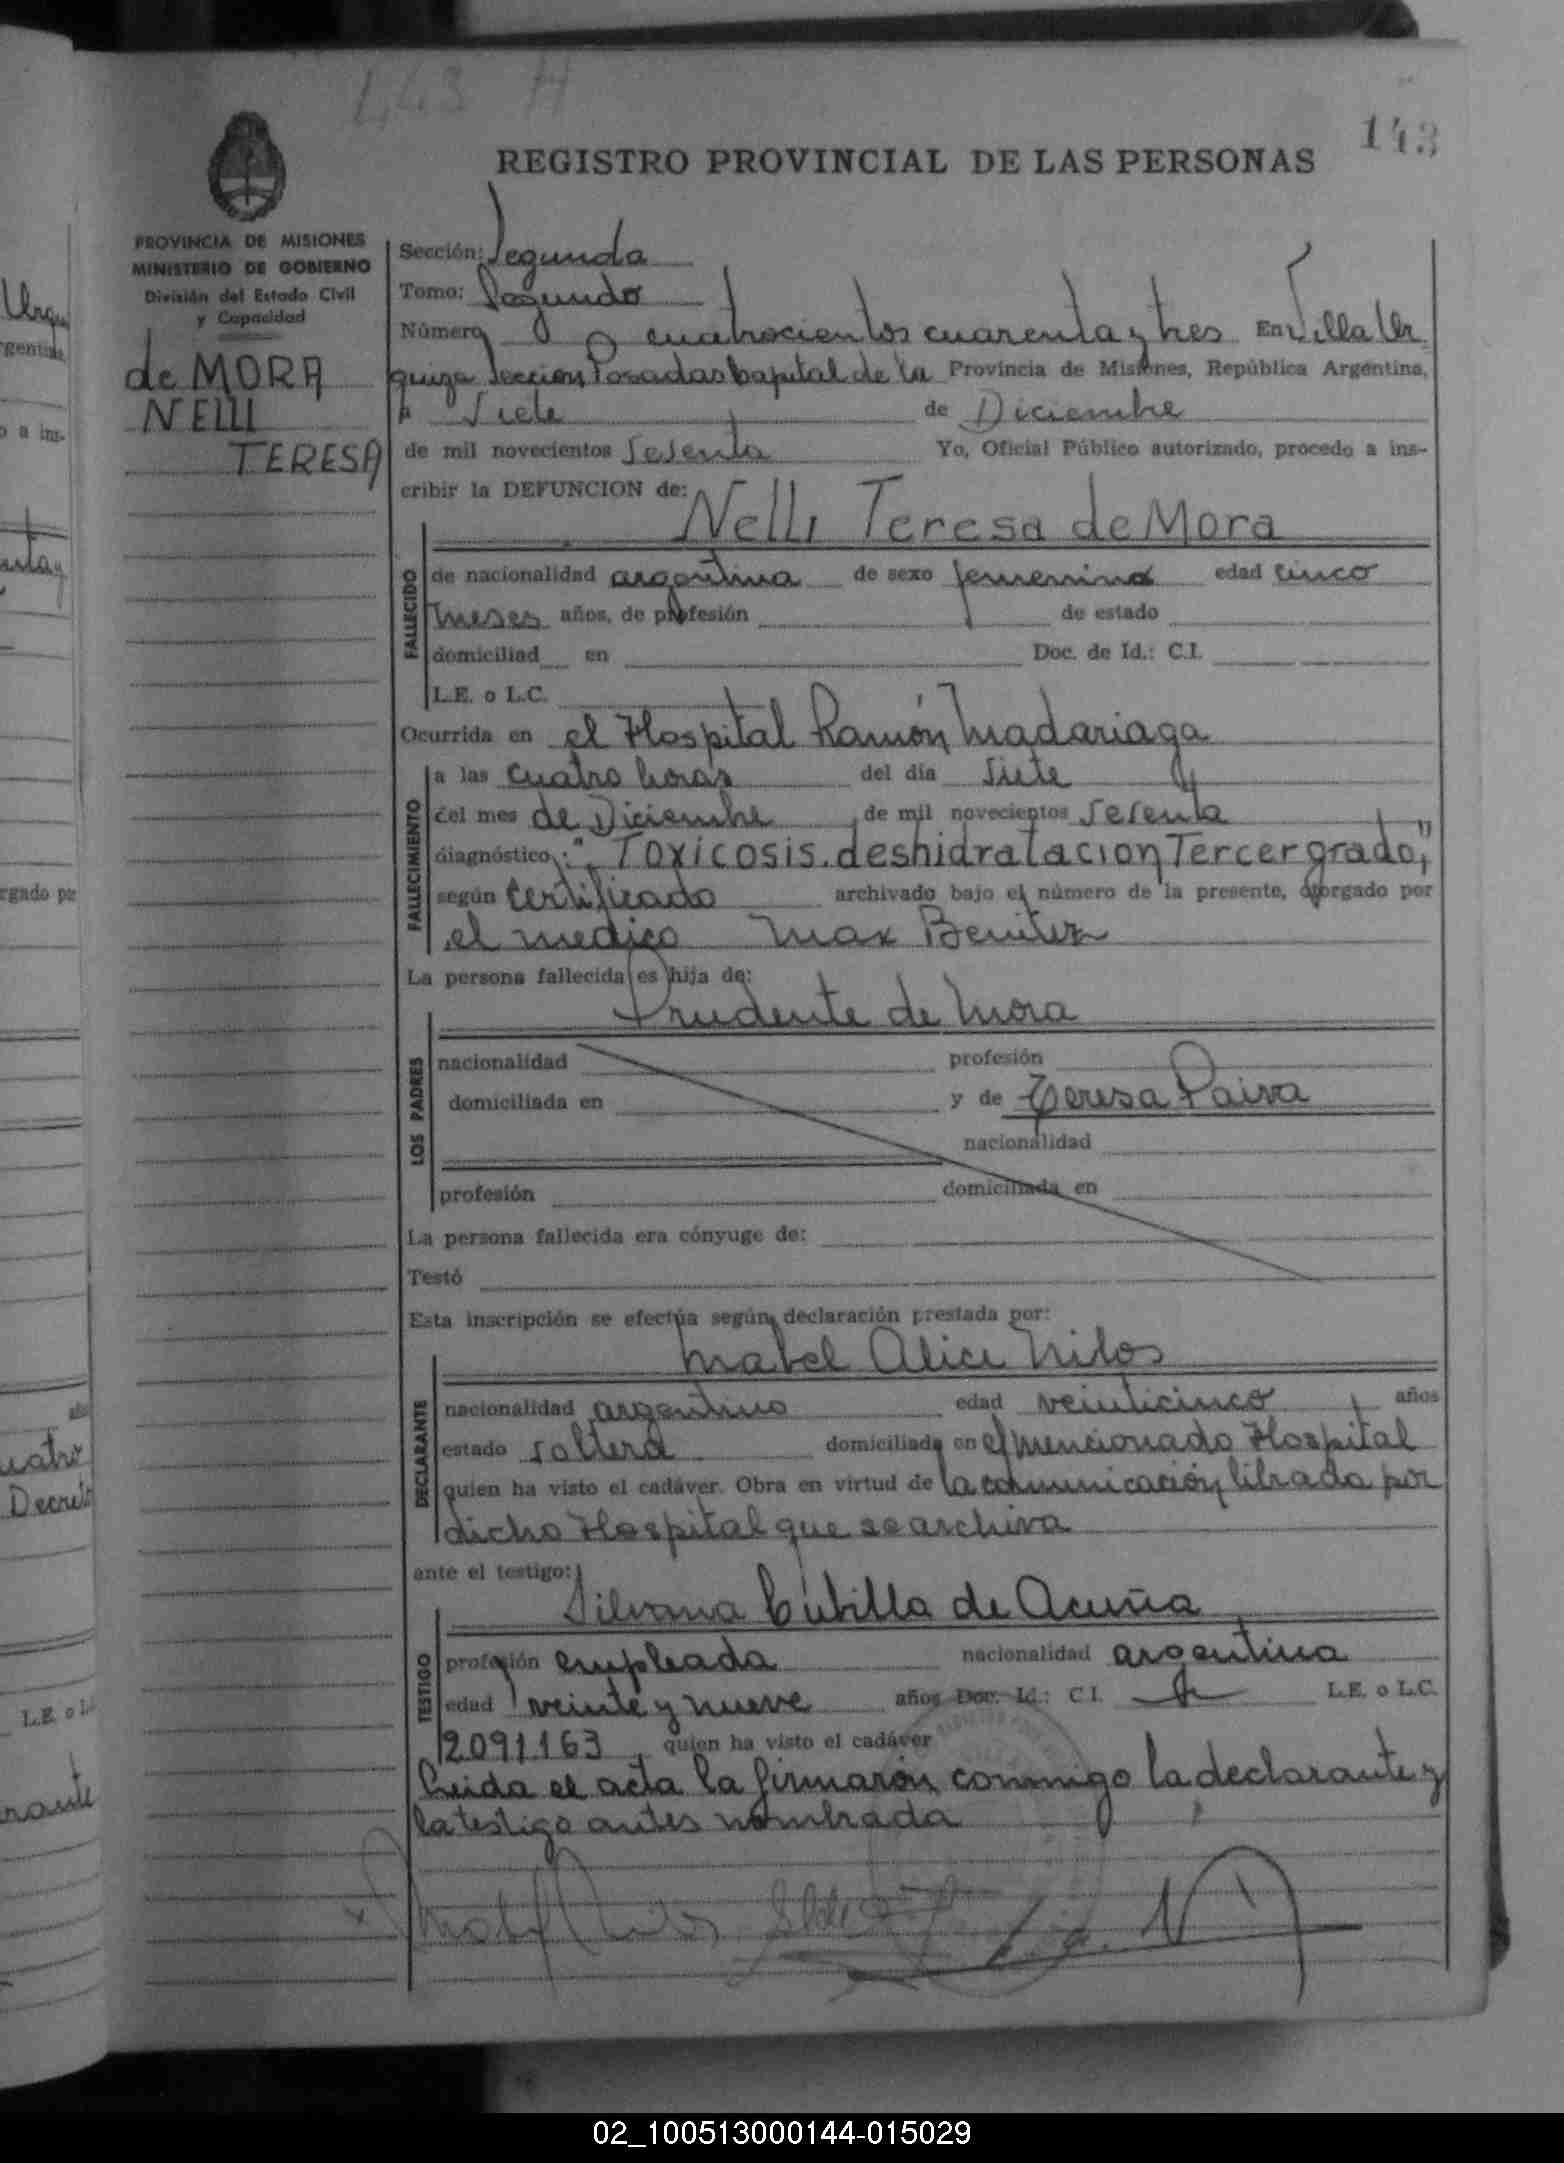 443 H
143
REGISTRO PROVINCIAL DE LAS PERSONAS
PROVINCIA DE MISIONES
MINISTERIO DE GOBIERNO
División del Estado Civil
y Capacidad
de MORA
NELLI
TERESA
Sección: Segunda
Tomo: Segundo
Número cuatrocientos cuarenta y tres En Villa Ur
quiza Sección Posadas Capital de la Provincia de Misiones, República Argentina,
a Siete de Diciembre
de mil novecientos sesenta Yo, Oficial Público autorizado, procedo a ins-
cribir la DEFUNCION de:
Nelli Teresa de Mora
FALLECIDO
de nacionalidad argentina de sexo femenino edad cinco
meses años, de profesión de estado
domiciliad en Doc. de Id.: C.I.
L.E. o L.C.
Ocurrida en el Hospital Ramón Madariaga
FALLECIMIENTO
a las cuatro horas del día siete
del mes de Diciembre de mil novecientos sesenta
diagnóstico: "Toxicosis. deshidratacion Tercer grado,"
según certificado archivado bajo el número de la presente, otorgado por
el medico Max Benitez
La persona fallecida es hija de:
Prudente de Mora
LOS PADRES
nacionalidad profesión
domiciliada en y de Teresa Paiva
nacionalidad
profesión domiciliada en
La persona fallecida era cónyuge de:
Testó
Esta inscripción se efectúa según declaración prestada por:
Mabel Alice Milos
DECLARANTE
nacionalidad argentino edad veinticinco años
estado soltera domiciliada en el mencionado Hospital
quien ha visto el cadáver. Obra en virtud de la comunicación librada por
dicho Hospital que se archiva
ante el testigo:
Silvana Cubilla de Acuña
TESTIGO
profesión empleada nacionalidad argentina
edad veinte y nueve años Doc. Id.: C.I. L.E. o L.C.
2.091.163 quien ha visto el cadáver
Leida el acta la firmarón conmigo la declarante y
la testigo antes nombrada
02_100513000144-015029